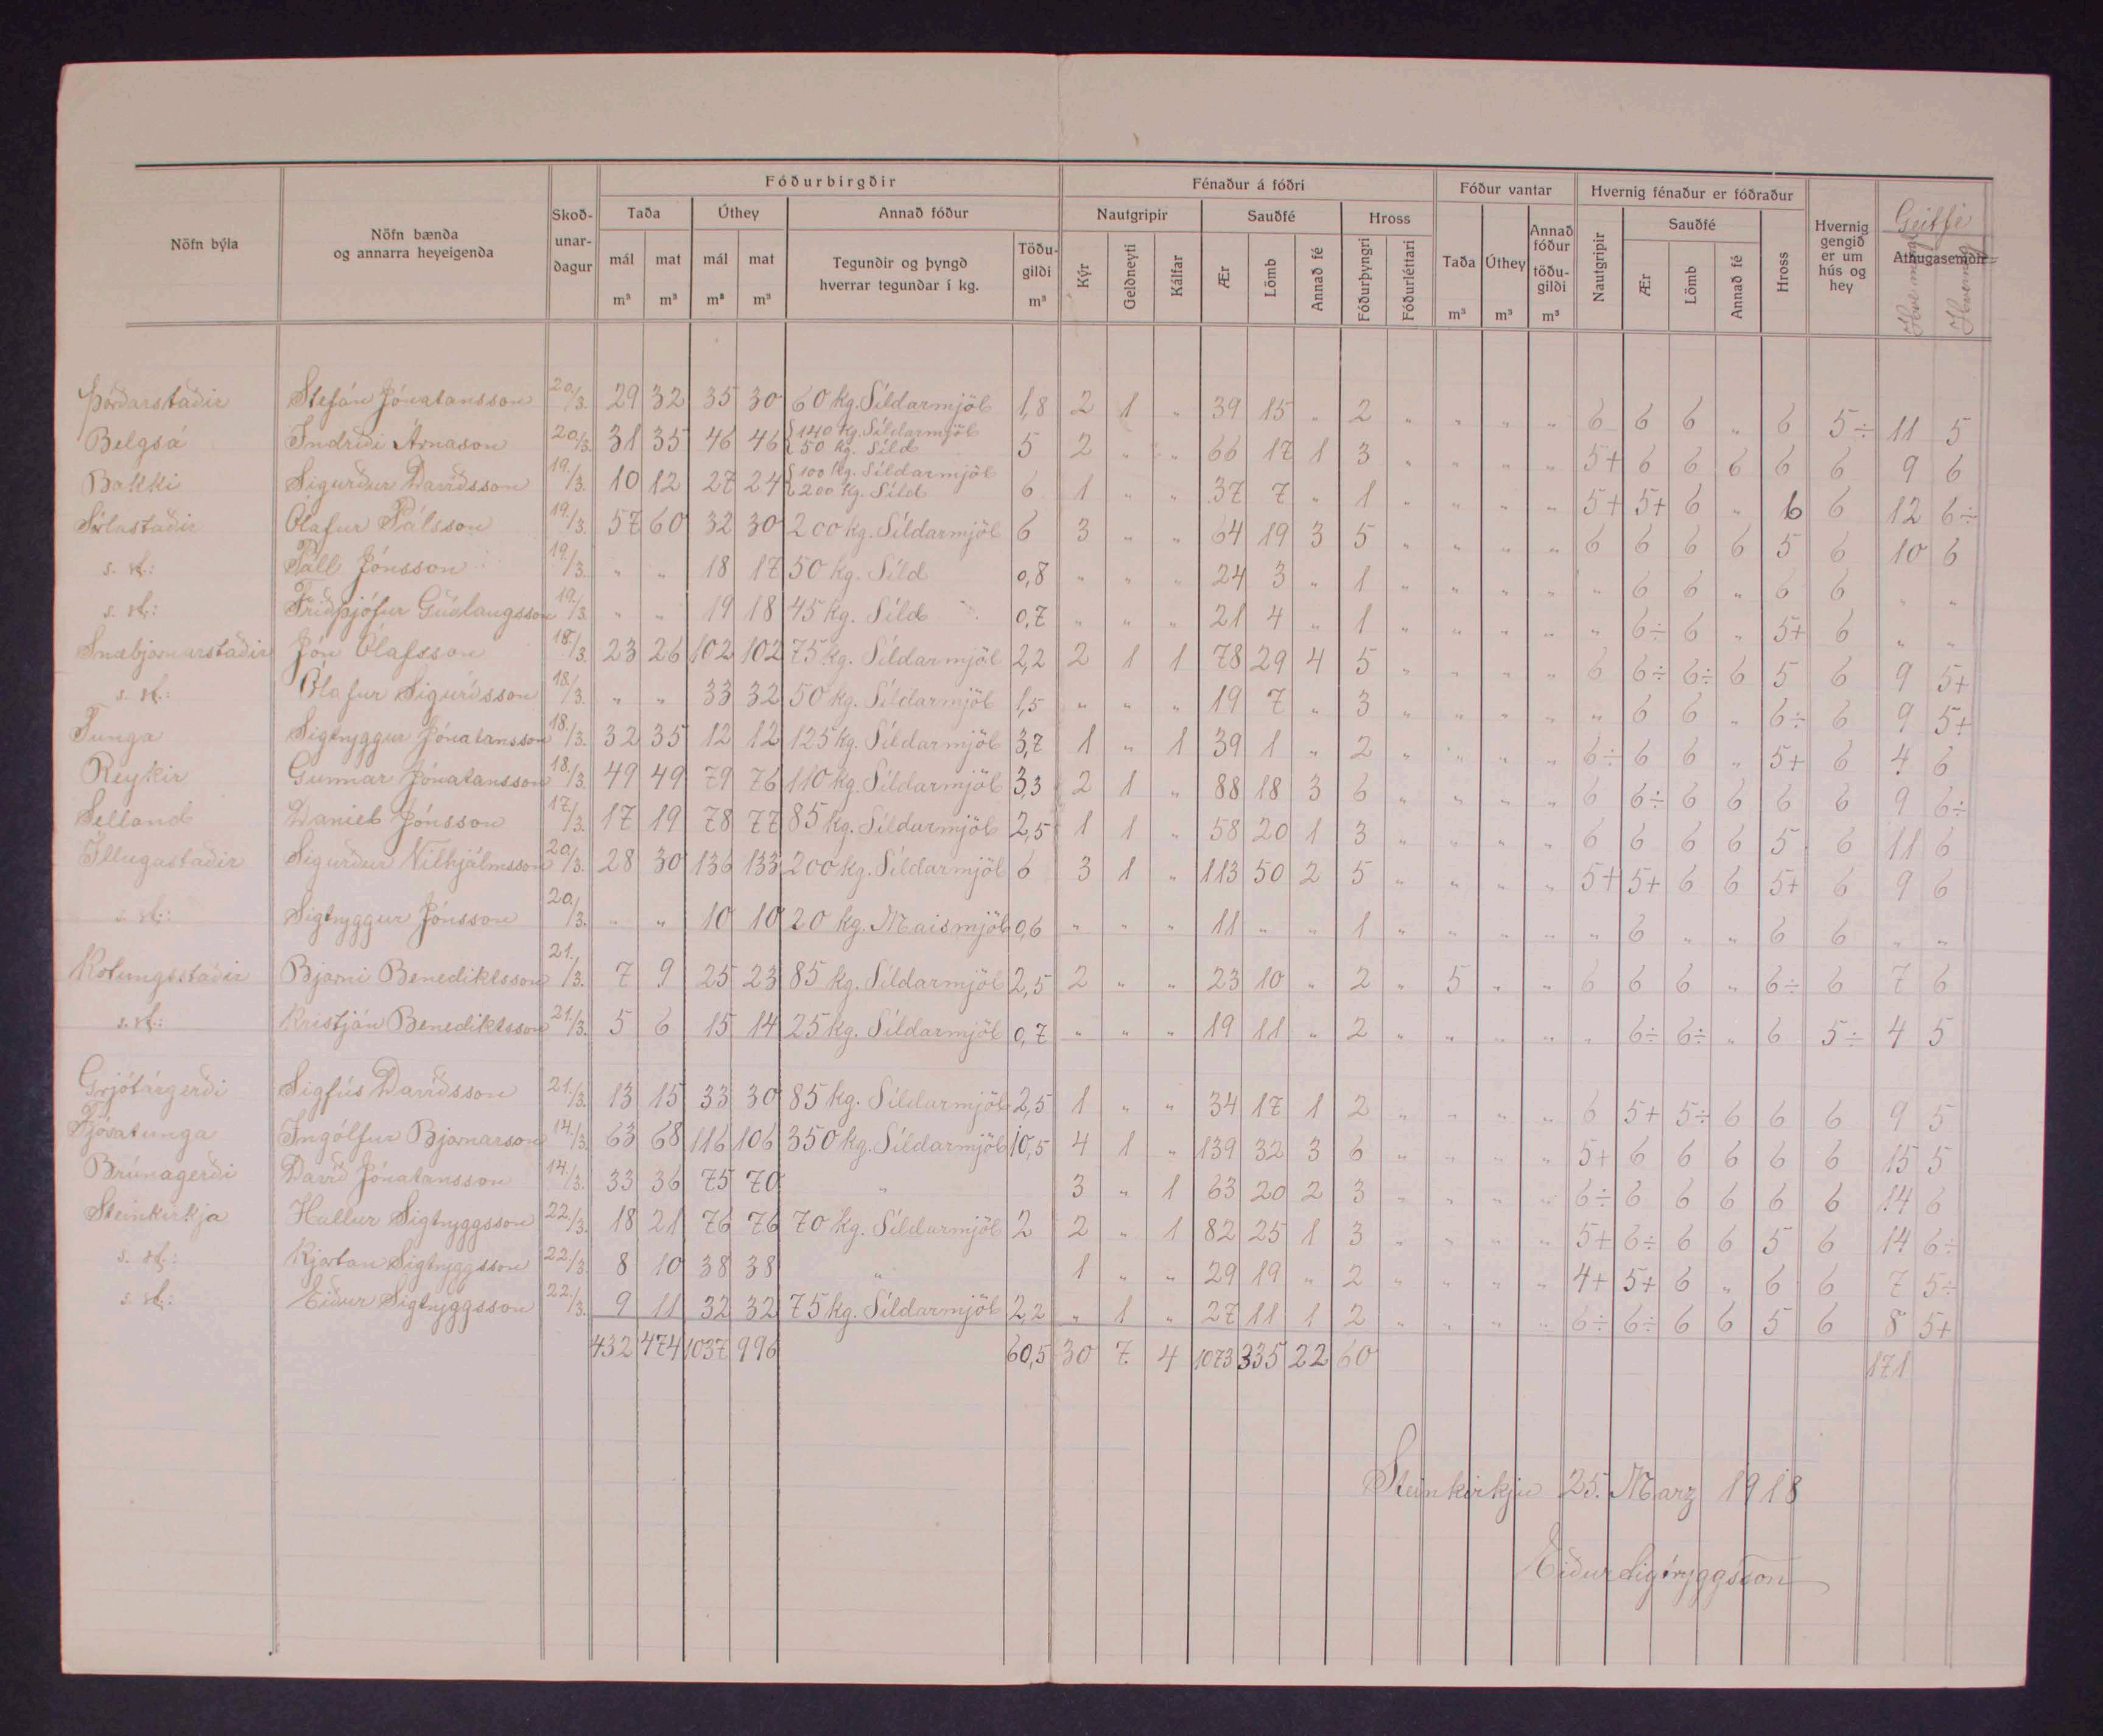 Fóðurbirgðir Fénaður á fóðri Fóður vantar Hvernig fénaður er fóðraður
Nöfn býla
Nöfn bænda og annarra heyeigenda
Skoðunardagur
Taða Úthey Annað fóður Nautgripir Sauðfé Hross Taða Úthey Annað fóður töðugildi Nautgripir Sauðfé Hross Hvernig gengið er um hús og hey Geitfé Athugasemdir
mál mat mál mat Tegundir og þyngd hverrar tegundar í kg. Töðugildi Kýr Geldneyti Kálfar Ær Lömb Annað fé Fóðurþyngri Fóðurléttari Ær Lömb Annað fé Hve margt Hvernig
m³ m³ m³ m³ m³ m³ m³ m³
Þórðarstaðir Stefán Jónatansson 20./3. 29 32 35 30 60 kg. Síldarmjöl 1,8 2 1 " 39 15 " 2 " " " " 6 6 6 " 6 5÷ 11 5
Belgsá Indriði Árnason 20./3. 31 35 46 46 { 140 kg. Síldarmjöl 50 kg. Síld 5 2 " " 66 17 1 3 " " " " 5+ 6 6 6 6 6 9 6
Bakki Sigurður Davíðsson 19./3. 10 12 27 24 { 100 kg. Síldarmjöl 200 kg. Síld 6 1 " " 37 7 " 1 " " " " 5+ 5+ 6 " 6 6 12 6÷
Sörlastaðir Ólafur Pálsson 19./3. 57 60 32 30 200 kg. Síldarmjöl 6 3 " " 64 19 3 5 " " " " 6 6 6 6 5 6 10 6
s. st.: Páll Jónsson 19./3. " " 18 17 50 kg. Síld 0,8 " " " 24 3 " 1 " " " " " 6 6 " 6 6 " "
s. st.: Friðþjófur Guðlaugsson 19./3. " " 19 18 45 kg. Síld 0,7 " " " 21 4 " 1 " " " " " 6÷ 6 " 5+ 6 " "
Snæbjarnarstaðir Jón Ólafsson 18./3. 23 26 102 102 75 kg. Síldarmjöl 2,2 2 1 1 78 29 4 5 " " " " 6 6÷ 6÷ 6 5 6 9 5+
s. st.: Ólafur Sigurðsson 18./3. " " 33 32 50 kg. Síldarmjöl 1,5 " " " 19 7 " 3 " " " " " 6 6 " 6÷ 6 9 5+
Tunga Sigtryggur Jónatansson 18./3. 32 35 12 12 125 kg. Síldarmjöl 3,7 1 " 1 39 1 " 2 " " " " 6÷ 6 6 " 5+ 6 4 6
Reykir Gunnar Jónatansson 18./3. 49 49 79 76 110 kg. Síldarmjöl 3,3 2 1 " 88 18 3 6 " " " " 6 6÷ 6 6 6 6 9 6÷
Selland Daniel Jónsson 17/3. 17 19 78 77 85 kg. Síldarmjöl 2,5 1 1 " 58 20 1 3 " " " " 6 6 6 6 5 6 11 6
Illugastaðir Sigurður Vilhjálmsson 20./3. 28 30 136 133 200 kg. Síldarmjöl 6 3 1 " 113 50 2 5 " " " " 5+ 5+ 6 6 5+ 6 9 6
s. st.: Sigtryggur Jónsson 20./3. " " 10 10 20 kg. Maismjöl 0,6 " " " 11 " " 1 " " " " " 6 " " 6 6 " "
Kotungsstaðir Bjarni Benediktsson 21./3. 7 9 25 23 85 kg. Síldarmjöl 2,5 2 " " 23 10 " 2 " 5 " " 6 6 6 " 6÷ 6 7 6
s. st.: Kristján Benediktsson 21./3. 5 6 15 14 25 kg. Síldarmjöl 0,7 " " " 19 11 " 2 " " " " " 6÷ 6÷ " 6 5÷ 4 5
Grjótárgerði Sigfús Davíðsson 21./3. 13 15 33 30 85 kg. Síldarmjöl 2,5 1 " " 34 17 1 2 " " " " 6 5+ 5÷ 6 6 6 9 5
Fjósatunga Ingólfur Bjarnarson 14./3. 63 68 116 106 350 kg. Síldarmjöl 10,5 4 1 " 139 32 3 6 " " " " 5+ 6 6 6 6 6 15 5
Brúnagerði Davíð Jónatansson 14./3. 33 36 75 70 " 3 " 1 63 20 2 3 " " " " 6÷ 6 6 6 6 6 14 6
Steinkirkja Hallur Sigtryggsson 22./3. 18 21 76 76 70 kg. Síldarmjöl 2 2 " 1 82 25 1 3 " " " " 5+ 6÷ 6 6 5 6 14 6÷
s. st.: Kjartan Sigtryggsson 22/3. 8 10 38 38 " 1 " " 29 19 " 2 " " " " 4+ 5+ 6 " 6 6 7 5÷
s. st.: Eiður Sigtryggsson 22./3. 9 11 32 32 75 kg. Síldarmjöl 2,2 " 1 " 27 11 1 2 " " " " 6÷ 6÷ 6 6 5 6 8 5+
432 474 1037 996 60,5 30 7 4 1073 335 22 60 171
Steinkirkju 25. Marz 1918
Eiður Sigtryggsson